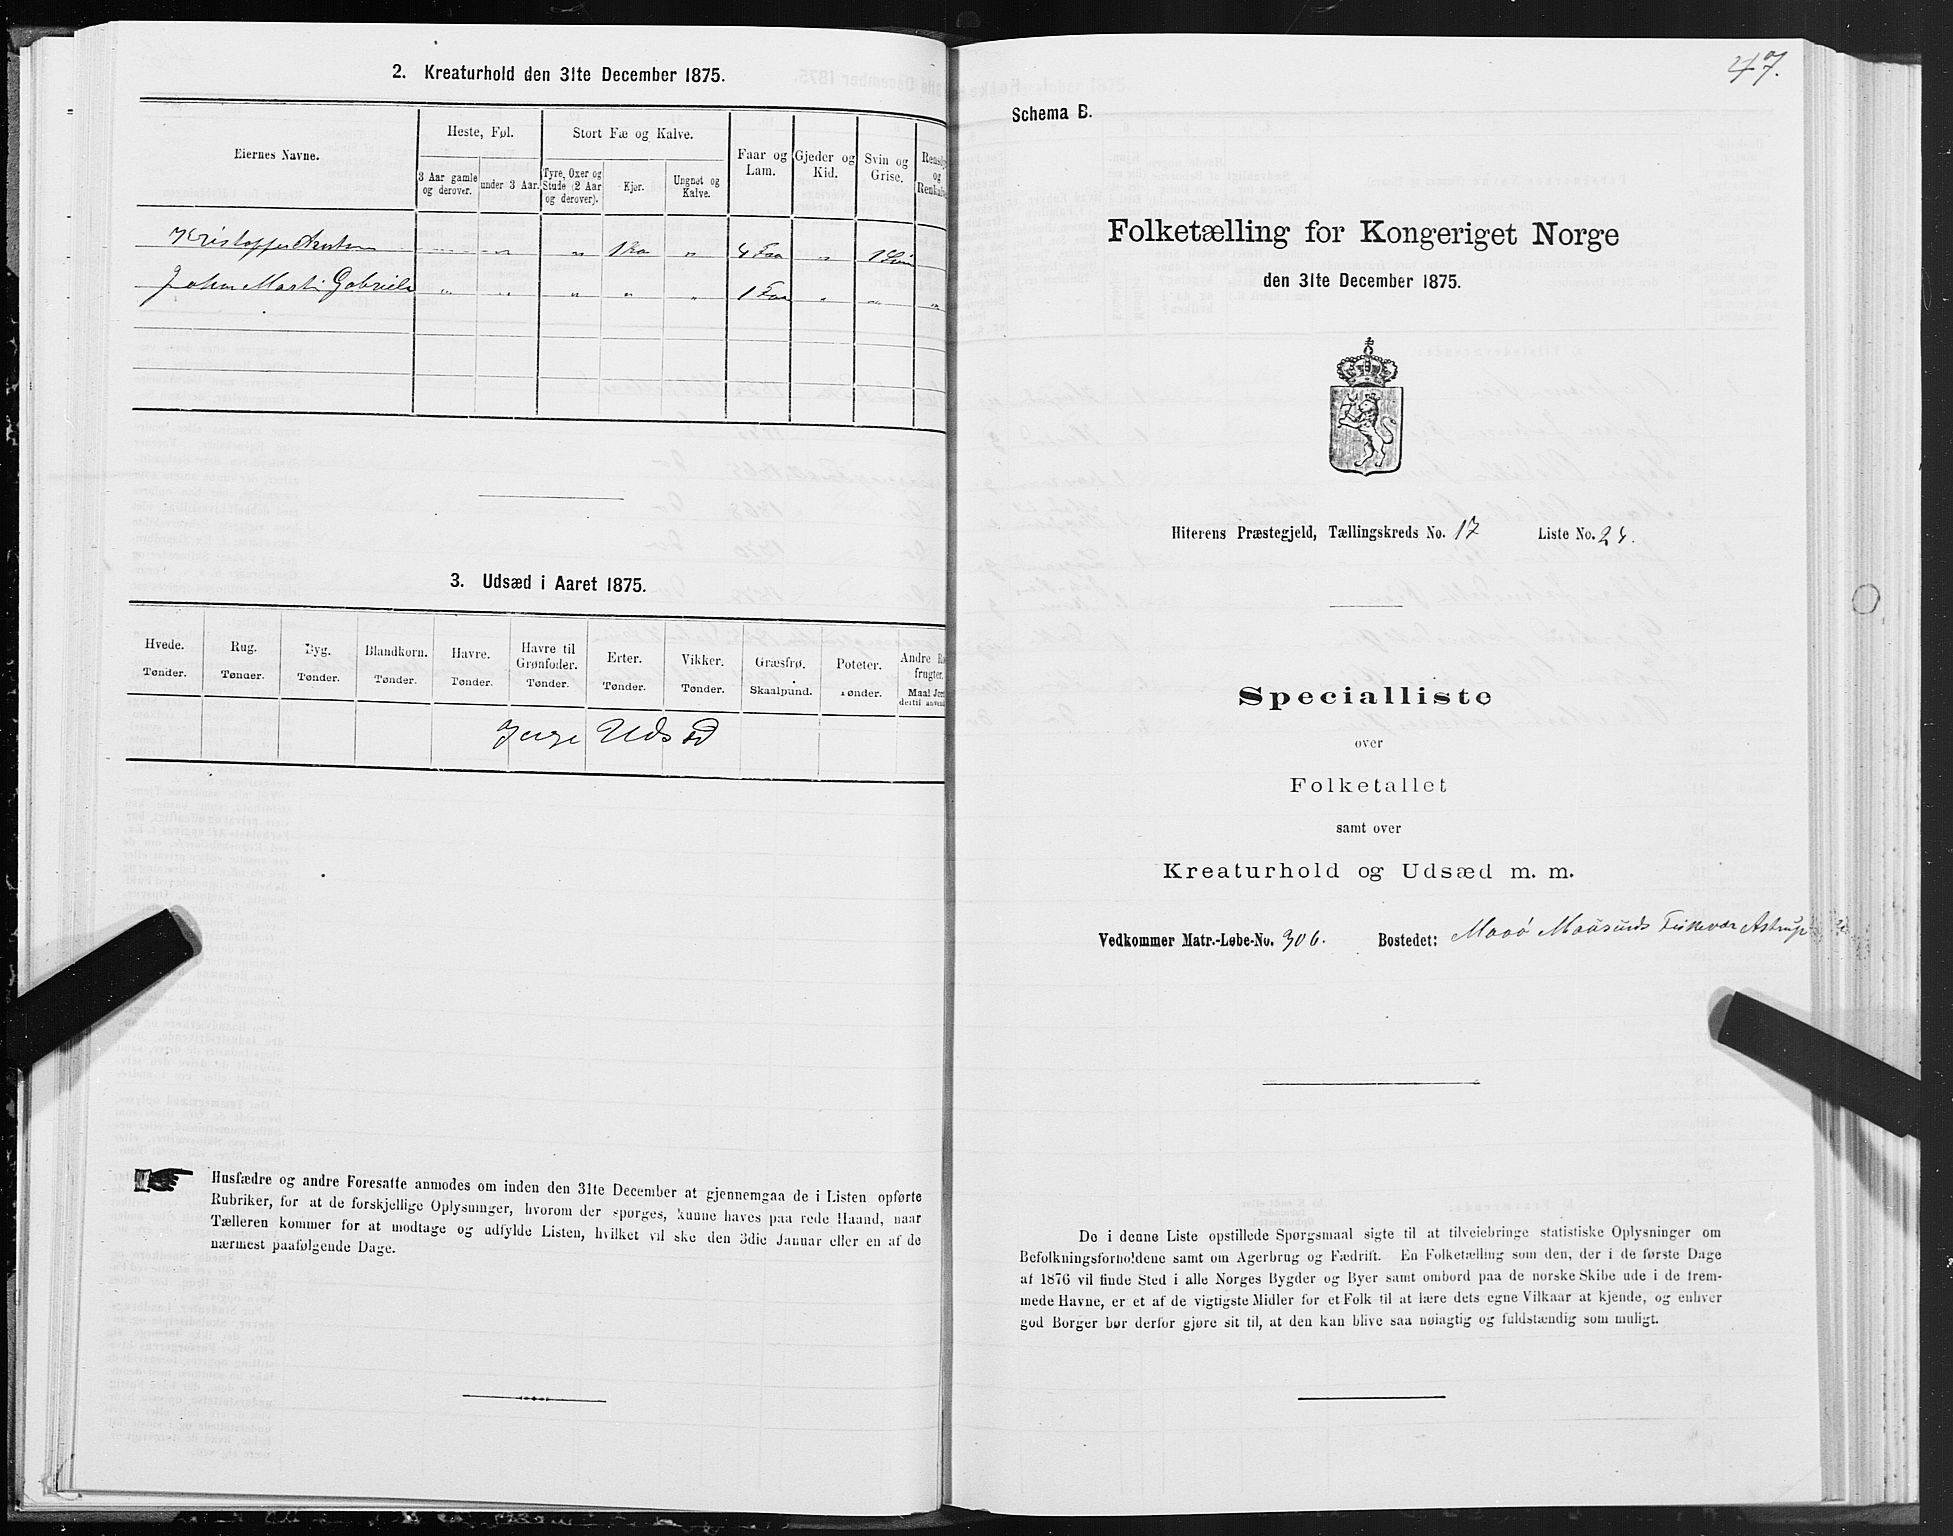 2. Kreaturhold den 31te December 1875.
Eiernes Navne.
Heste, Føl.
Stort Fæ og Kalve.
Faar og Lam.
Gjeder og Kid.
Svin og Grise.
Rensdyr og Renkalve
3 Aar gamle og derover.
under 3 Aar.
Tyre, Oxer og Stude (2 Aar og derover).
Kjør.
Ungnøt og Kalve.
Kristoffer " " " 1 Ko " 4 Faa " 1 Svin
Johan Marti Gabriels " " " " " 1 Faa " " "
3. Udsæd i Aaret 1875.
Hvede. Rug. Byg. Blandkorn. Havre. Havre til Grønfoder. Erter. Vikker. Græsfrø. Poteter. Andre frugter.
Tønder. Tønder. Tønder. Tønder. Tønder. Tønder. Tønder. Tønder. Skaalpund. Tønder. Maal
Inge Udsæd
Husfædre og andre Foresatte anmodes om inden den 31te December at gjennemgaa de i Listen opførte
Rubriker, for at de forskjellige Oplysninger, hvorom der spørges, kunne haves paa rede Haand, naar
Tælleren kommer for at modtage og udfylde Listen, hvilket vil ske den 3die Januar eller en af de
nærmest paafølgende Dage.
47.
Schema B.
Folketælling for Kongeriget Norge
den 31te December 1875.
Hiterens Præstegjeld, Tællingskreds No. 17 Liste No. 24.
Specialliste
over
Folketallet
samt over
Kreaturhold og Udsæd m. m.
Vedkommer Matr.-Løbe-No. 306. Bostedet: Maaø Maasunds Fiskevær Astrup
De i denne Liste opstillede Spørgsmaal sigte til at tilveiebringe statistiske Oplysninger om
Befolkningsforholdene samt om Agerbrug og Fædrift. En Folketælling som den, der i de første Dage
af 1876 vil finde Sted i alle Norges Bygder og Byer samt ombord paa de norske Skibe ude i de frem-
mede Havne, er et af de vigtigste Midler for et Folk til at lære dets egne Vilkaar at kjende, og enhver
god Borger bør derfor gjøre sit til, at den kan blive saa nøiagtig og fuldstændig som muligt.